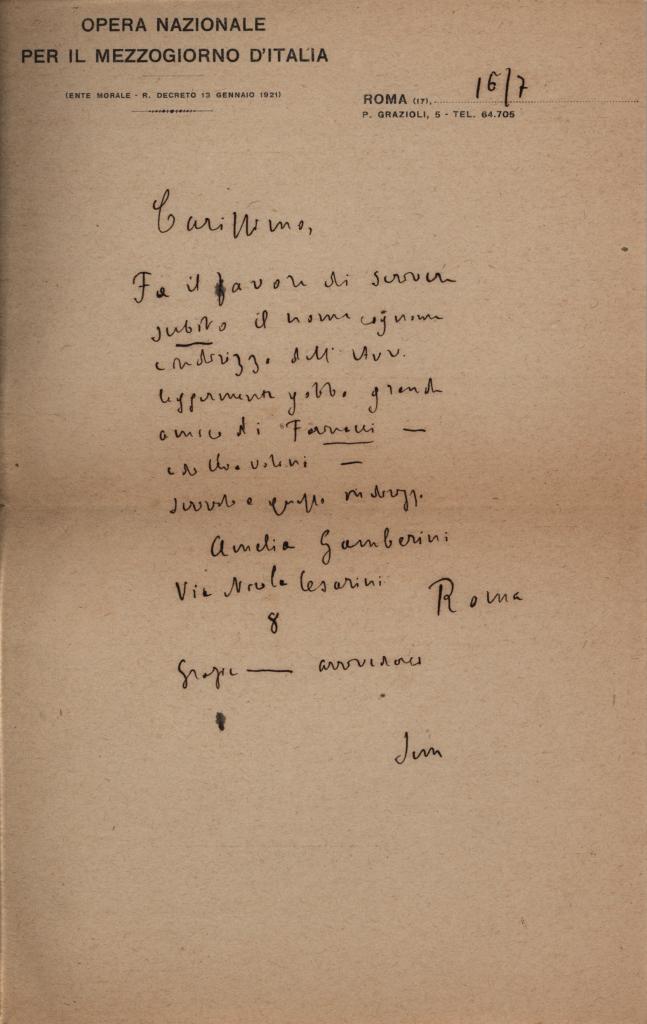 OPERA NAZIONALE
PER IL MEZZOGIORNO D'ITALIA
(ENTE MORALE - R. DECRETO 13 GENNAIO 1921)
ROMA (17), 16/7
P. GRAZIOLI, 5 - TEL. 64.705
Carissimo,
Fa il favore di scrivere
subito il nome cognome
indirizzo dell' Avv.
leggermente gobbo grande
amico di
scrivilo a questo indirizzo
Amelia Gamberini
Via Nicola Cesarini Roma
8
Grazie — arrivederci